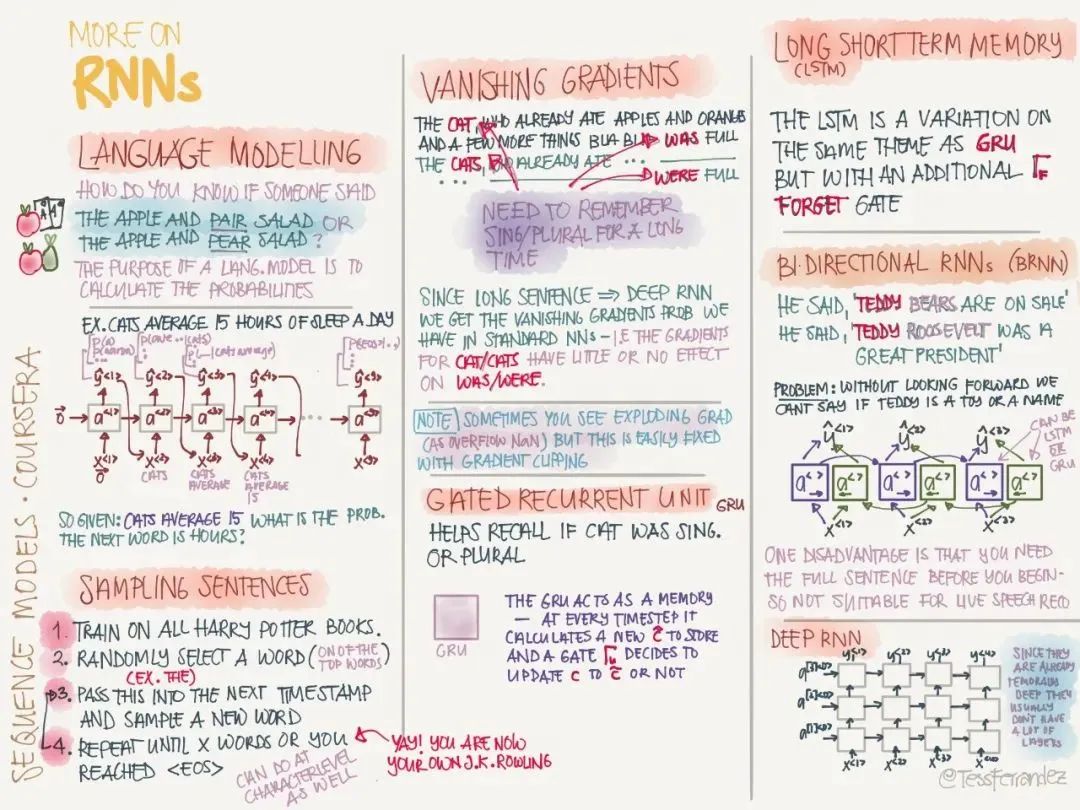 MORE ON
RNNs
SEQUENCE MODELS · COURSERA
LANGUAGE MODELLING
HOW DO YOU KNOW IF SOMEONE SAID
THE APPLE AND PAIR SALAD OR
THE APPLE AND PEAR SALAD?
THE PURPOSE OF A LANG. MODEL IS TO
CALCULATE THE PROBABILITIES
EX. CATS AVERAGE 15 HOURS OF SLEEP A DAY
ŷ<1> ŷ<2> ŷ<3> ŷ<4> ŷ<9>
0 a<1> a<2> a<3> a<4> ... a<9>
x<1> x<2> x<3> x<4> x<9>
0 CATS CATS AVERAGE CATS AVERAGE 15
SO GIVEN: CATS AVERAGE 15 WHAT IS THE PROB.
THE NEXT WORD IS HOURS?
SAMPLING SENTENCES
1. TRAIN ON ALL HARRY POTTER BOOKS.
2. RANDOMLY SELECT A WORD (ON OF THE TOP WORDS)
(EX. THE)
3. PASS THIS INTO THE NEXT TIMESTAMP
AND SAMPLE A NEW WORD
4. REPEAT UNTIL X WORDS OR YOU
REACHED <EOS>
CAN DO AT
CHARACTERLEVEL
AS WELL
YAY! YOU ARE NOW
YOUR OWN J.K. ROWLING
VANISHING GRADIENTS
THE CAT, WHO ALREADY ATE APPLES AND ORANGES
AND A FEW MORE THINGS BLA BLA WAS FULL
THE CATS, ALREADY ATE ...
... WERE FULL
NEED TO REMEMBER
SING/PLURAL FOR A LONG
TIME
SINCE LONG SENTENCE ⇒ DEEP RNN
WE GET THE VANISHING GRADIENTS PROB WE
HAVE IN STANDARD NNs – I.E THE GRADIENTS
FOR CAT/CATS HAVE LITLE OR NO EFFECT
ON WAS/WERE.
NOTE SOMETIMES YOU SEE EXPLODING GRAD
(AS OVERFLOW NaN) BUT THIS IS EASILY FIXED
WITH GRADIENT CLIPPING
GATED RECURRENT UNIT GRU
HELPS RECALL IF CAT WAS SING.
OR PLURAL
GRU
THE GRU ACTS AS A MEMORY
– AT EVERY TIMESTEP IT
CALCULATES A NEW c̃ TO STORE
AND A GATE Γu DECIDES TO
UPDATE c TO c̃ OR NOT
LONG SHORTTERM MEMORY
(LSTM)
THE LSTM IS A VARIATION ON
THE SAME THEME AS GRU
BUT WITH AN ADDITIONAL ΓF
FORGET GATE
BI-DIRECTIONAL RNNs (BRNN)
HE SAID, 'TEDDY BEARS ARE ON SALE'
HE SAID, 'TEDDY ROOSEVELT WAS A
GREAT PRESIDENT'
PROBLEM: WITHOUT LOOKING FORWARD WE
CANT SAY IF TEDDY IS A TOY OR A NAME
ŷ<1> ŷ<2> ŷ<3>
CAN BE
LSTM
OR
GRU
a<> a<> a<> a<> a<> a<>
x<1> x<2> x<3>
ONE DISADVANTAGE IS THAT YOU NEED
THE FULL SENTENCE BEFORE YOU BEGIN–
SO NOT SUITABLE FOR LIVE SPEECH RECO
DEEP RNN
y<1> y<2> y<3> y<4>
a[3]<0>
a[2]<0>
a[1]<0>
x<1> x<2> x<3> x<4>
SINCE THEY
ARE ALREADY
TEMPORALLY
DEEP THEY
USUALLY
DON'T HAVE
A LOT OF
LAYERS
@TessFerrandez